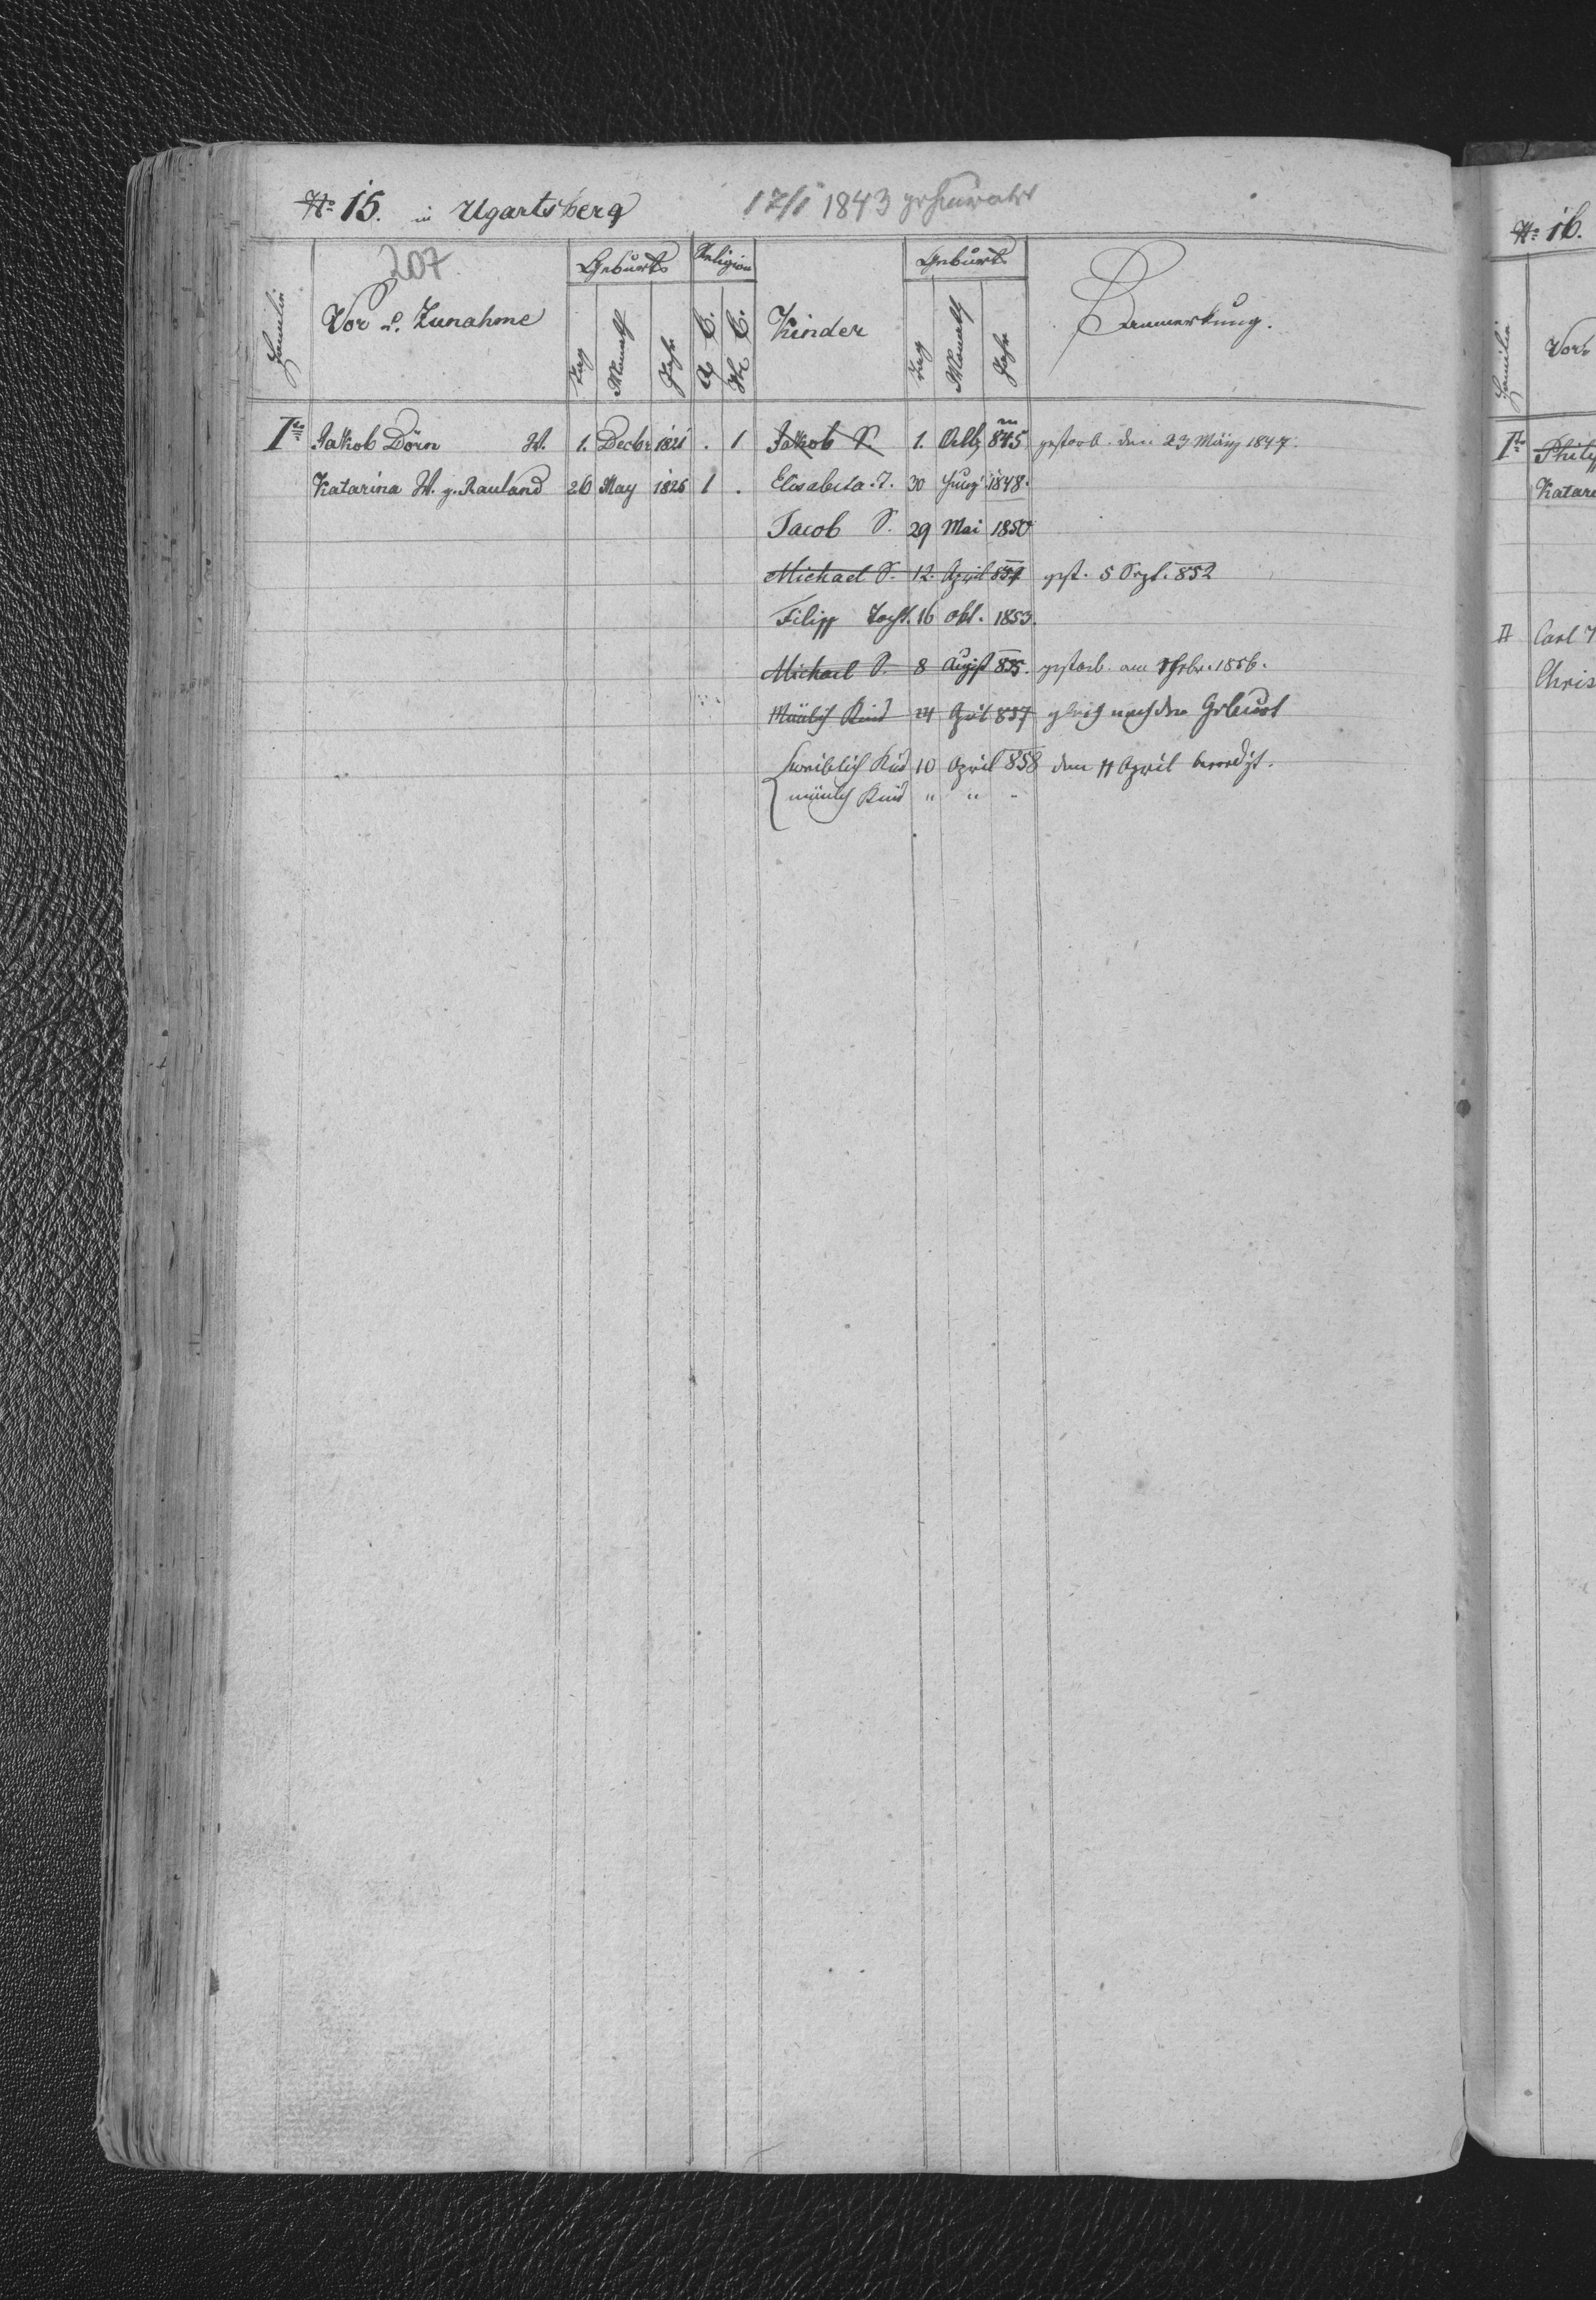 № 15. in Ugartsberg 17/I 1843 geheirathet
207
Familie Vor u. Zunahme Geburts Religion Kinder Geburts Anmerkung.
Tag Monath Jahr A. C. H. C. Tag Monath Jahr
I Jakob Dörn W. 1. Decbr 1821 . 1 Jakob S. 1. Octb 845 gestorb. den 23 März 1847.
Katarina W. g. Rauland 26 May 1826 1 . Elisabeta. T. 30 Juny 1848.
Jacob S. 29 Mai 1850
Michael S. 12. April 852 gest. 5 Sept. 852
Filipp 16 okt. 1853.
Michael S. 8 August 855. gestorb. am Febr. 1856.
Mänlich Kind 24 April 857 gleich nach der Geburt
weiblich Kind 10 April 858 den 11 April beerdigt.
mänlich Kind " " "
№ 16.
Familie Vor
I Philipp
Katar
II Carl
Chris